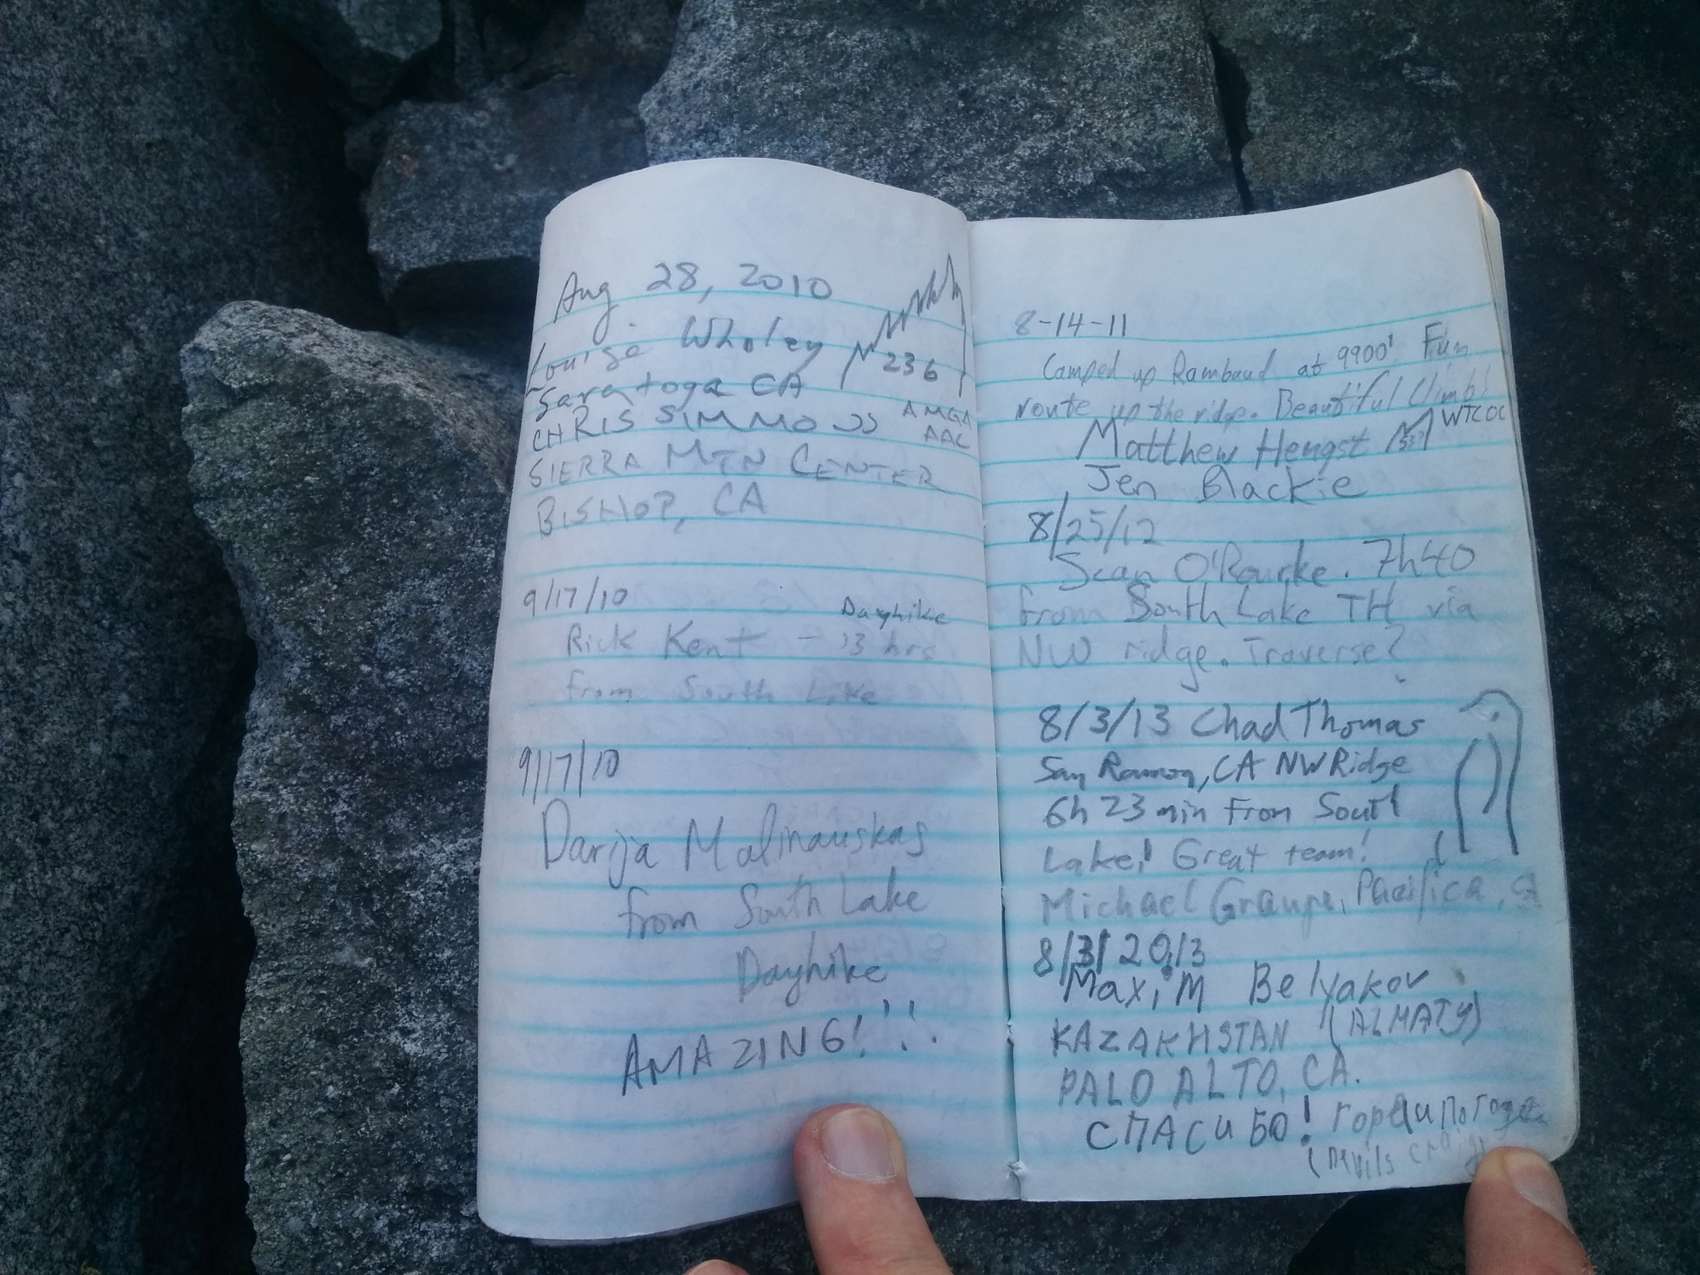 Aug 28, 2010
Louise Wholey 236
Saratoga CA
CHRIS SIMMONS AMGA
AAC
SIERRA MTN CENTER
BISHOP, CA
9/17/10 Dayhike
Rick Kent - 13 hrs
from South Lake
9/17/10
Darija Malinauskas
from South Lake
Dayhike
AMAZING!!!
8-14-11
Camped up Rambaud at 9900'. Fun
route up the ridge. Beautiful Climb!
Matthew Hengst WTCOC
Jen Blackie
8/25/12
Sean O'Rourke. 7h40
from South Lake TH via
NW ridge. Traverse?
8/3/13 Chad Thomas
San Ramon, CA NW Ridge
6h 23 min From South
Lake! Great team!
Michael Graupe, Pacifica, CA
8/3/2013
Maxim Belyakov
KAZAKHSTAN (ALMATY)
PALO ALTO, CA.
СПАСИБО! горы и погода
(Devils